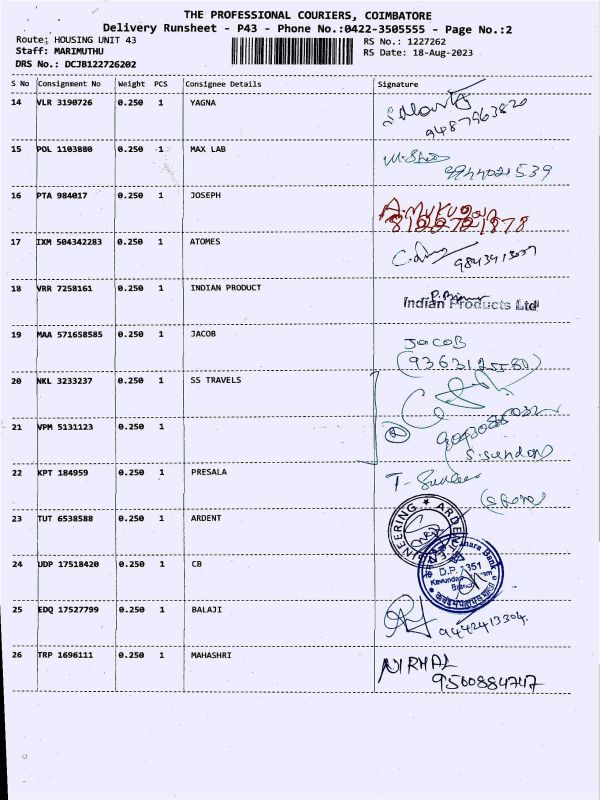 THE PROFESSIONAL COURIERS, COIMBATORE
Delivery Runsheet - P43 - Phone No.:0422-3505555 - Page No.:2
Route; HOUSING UNIT 43
Staff: MARIMUTHU
DRS No.: DCJB122726202
RS No.: 1227262
RS Date: 18-Aug-2023
S No Consignment No Weight PCS Consignee Details Signature
14 VLR 3190726 0.250 1 YAGNA
9487963820
15 POL 1103880 0.250 1 MAX LAB
16 PTA 984017 0.250 1 JOSEPH
A.Murugan
17 IXM 504342283 0.250 1 ATOMES
18 VRR 7258161 0.250 1 INDIAN PRODUCT
Indian Products Ltd
19 MAA 571658585 0.250 1 JACOB
JACOB
20 NKL 3233237 0.250 1 SS TRAVELS
21 VPM 5131123 0.250 1
S.Sundar
22 KPT 184959 0.250 1 PRESALA
23 TUT 6538588 0.250 1 ARDENT
24 UDP 17518420 0.250 1 CB
D.P. 1351
Branch
25 EDQ 17527799 0.250 1 BALAJI
9442413304.
26 TRP 1696111 0.250 1 MAHASHRI
NIRMAL
9500884747